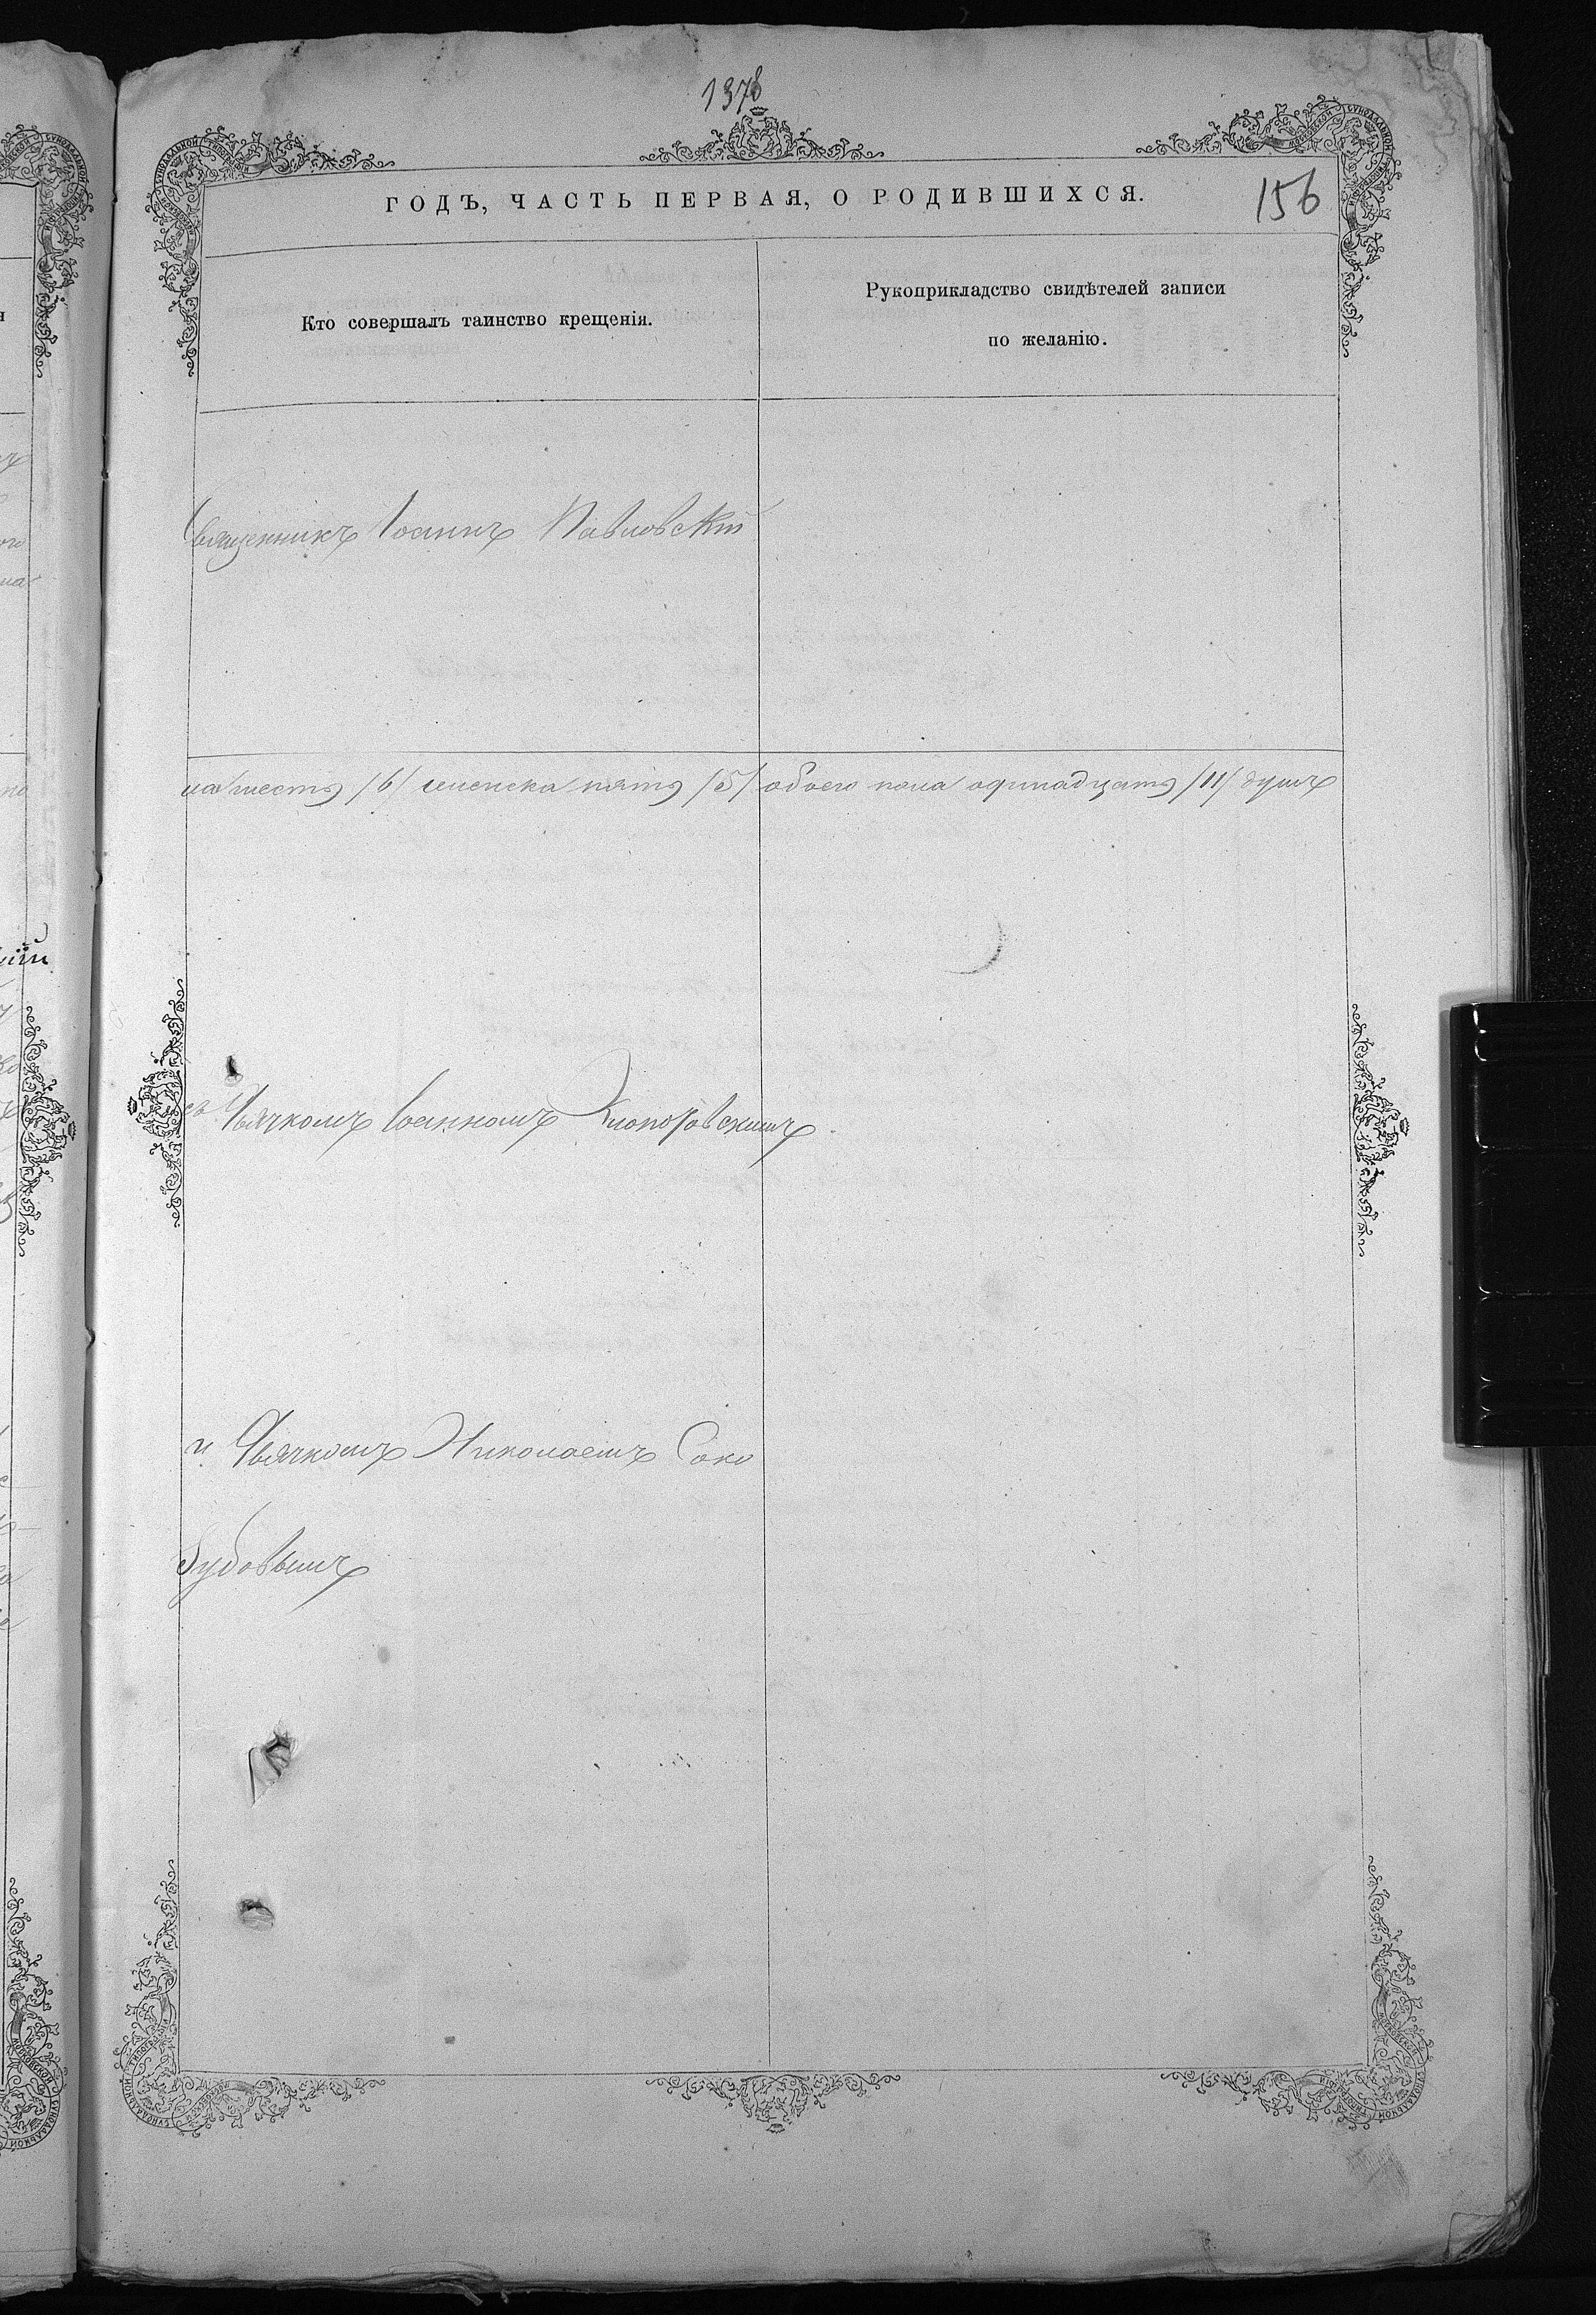 1878
ГОДЪ, ЧАСТЬ ПЕРВАЯ, О РОДИВШИХСЯ.
156
Кто совершалъ таинство крещенія.
Рукоприкладство свидѣтелей записи
по желанію.
Священникъ Іоаннъ Павловскій
на шесть /6/ женска пять /5/ обоего пола одинадцать /11/ душъ
съ Дьячкомъ Іоанномъ
и Дьячкомъ Николаемъ Соко